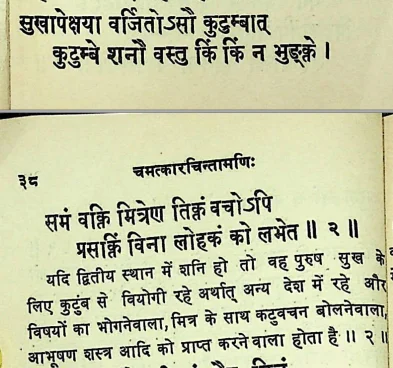 सुखापेक्षया वर्जितोऽसौ कुटुम्बात्
कुटुम्बे शनौ वस्तु किं किं न भुङ्क्ते ।
३८ चमत्कारचिन्तामणिः
समं वक्ति मित्रेण तिक्तं वचोऽपि
प्रसक्तिं विना लोहकं को लभेत ॥ २ ॥
यदि द्वितीय स्थान में शनि हो तो वह पुरुष सुख के
लिए कुटुंब से वियोगी रहे अर्थात् अन्य देश में रहे और
विषयों का भोगनेवाला, मित्र के साथ कटुवचन बोलनेवाला,
आभूषण शस्त्र आदि को प्राप्त करने वाला होता है ॥ २ ॥